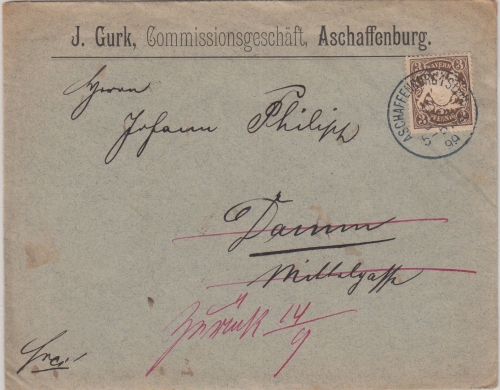 J. Gurk, Commissionsgeschäft, Aschaffenburg.
BAYERN
3 3
PFENNIG
3 3
ASCHAFFENBURG
99
Herrn
Johann Philipp
Damm
Mittelgasse
Zurück 14/9
frei